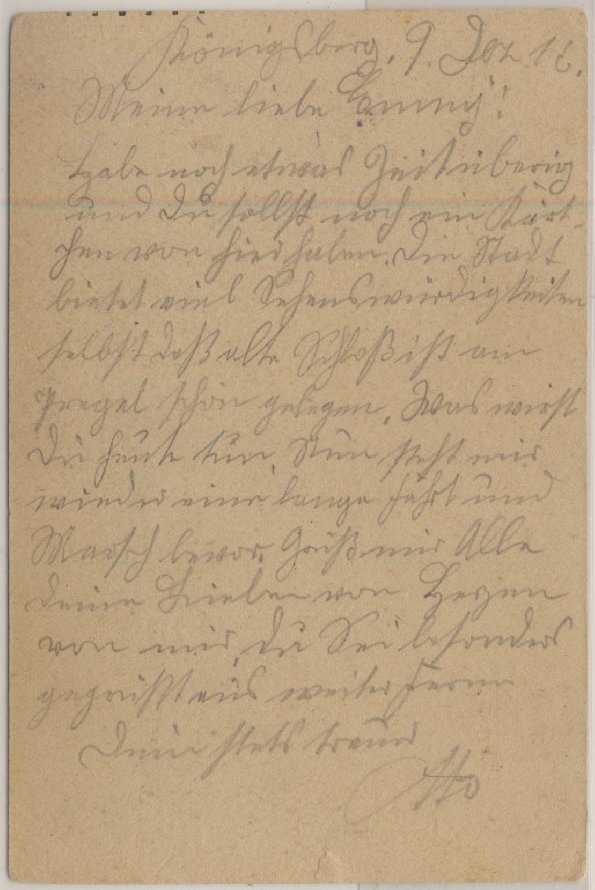 Königsberg, 9. Dez. 16.
Meine liebe Emmy!
Habe noch etwas Zeit überig
und Du sollst noch ein Kärt-
chen von hier haben. Die Stadt
bietet viel Sehenswürdigkeiten
selbst daß alte Schloß ist am
Pregel schön gelegen. Was wirst
Du heute tun. Nun steht mir
wieder eine lange Fahrt und
Marsch bevor. Grüß mir Alle
deine Lieben von Herzen
von mir, du Sei besonders
gegrüßt aus weiter Ferne
Dein stets treuer
Otto